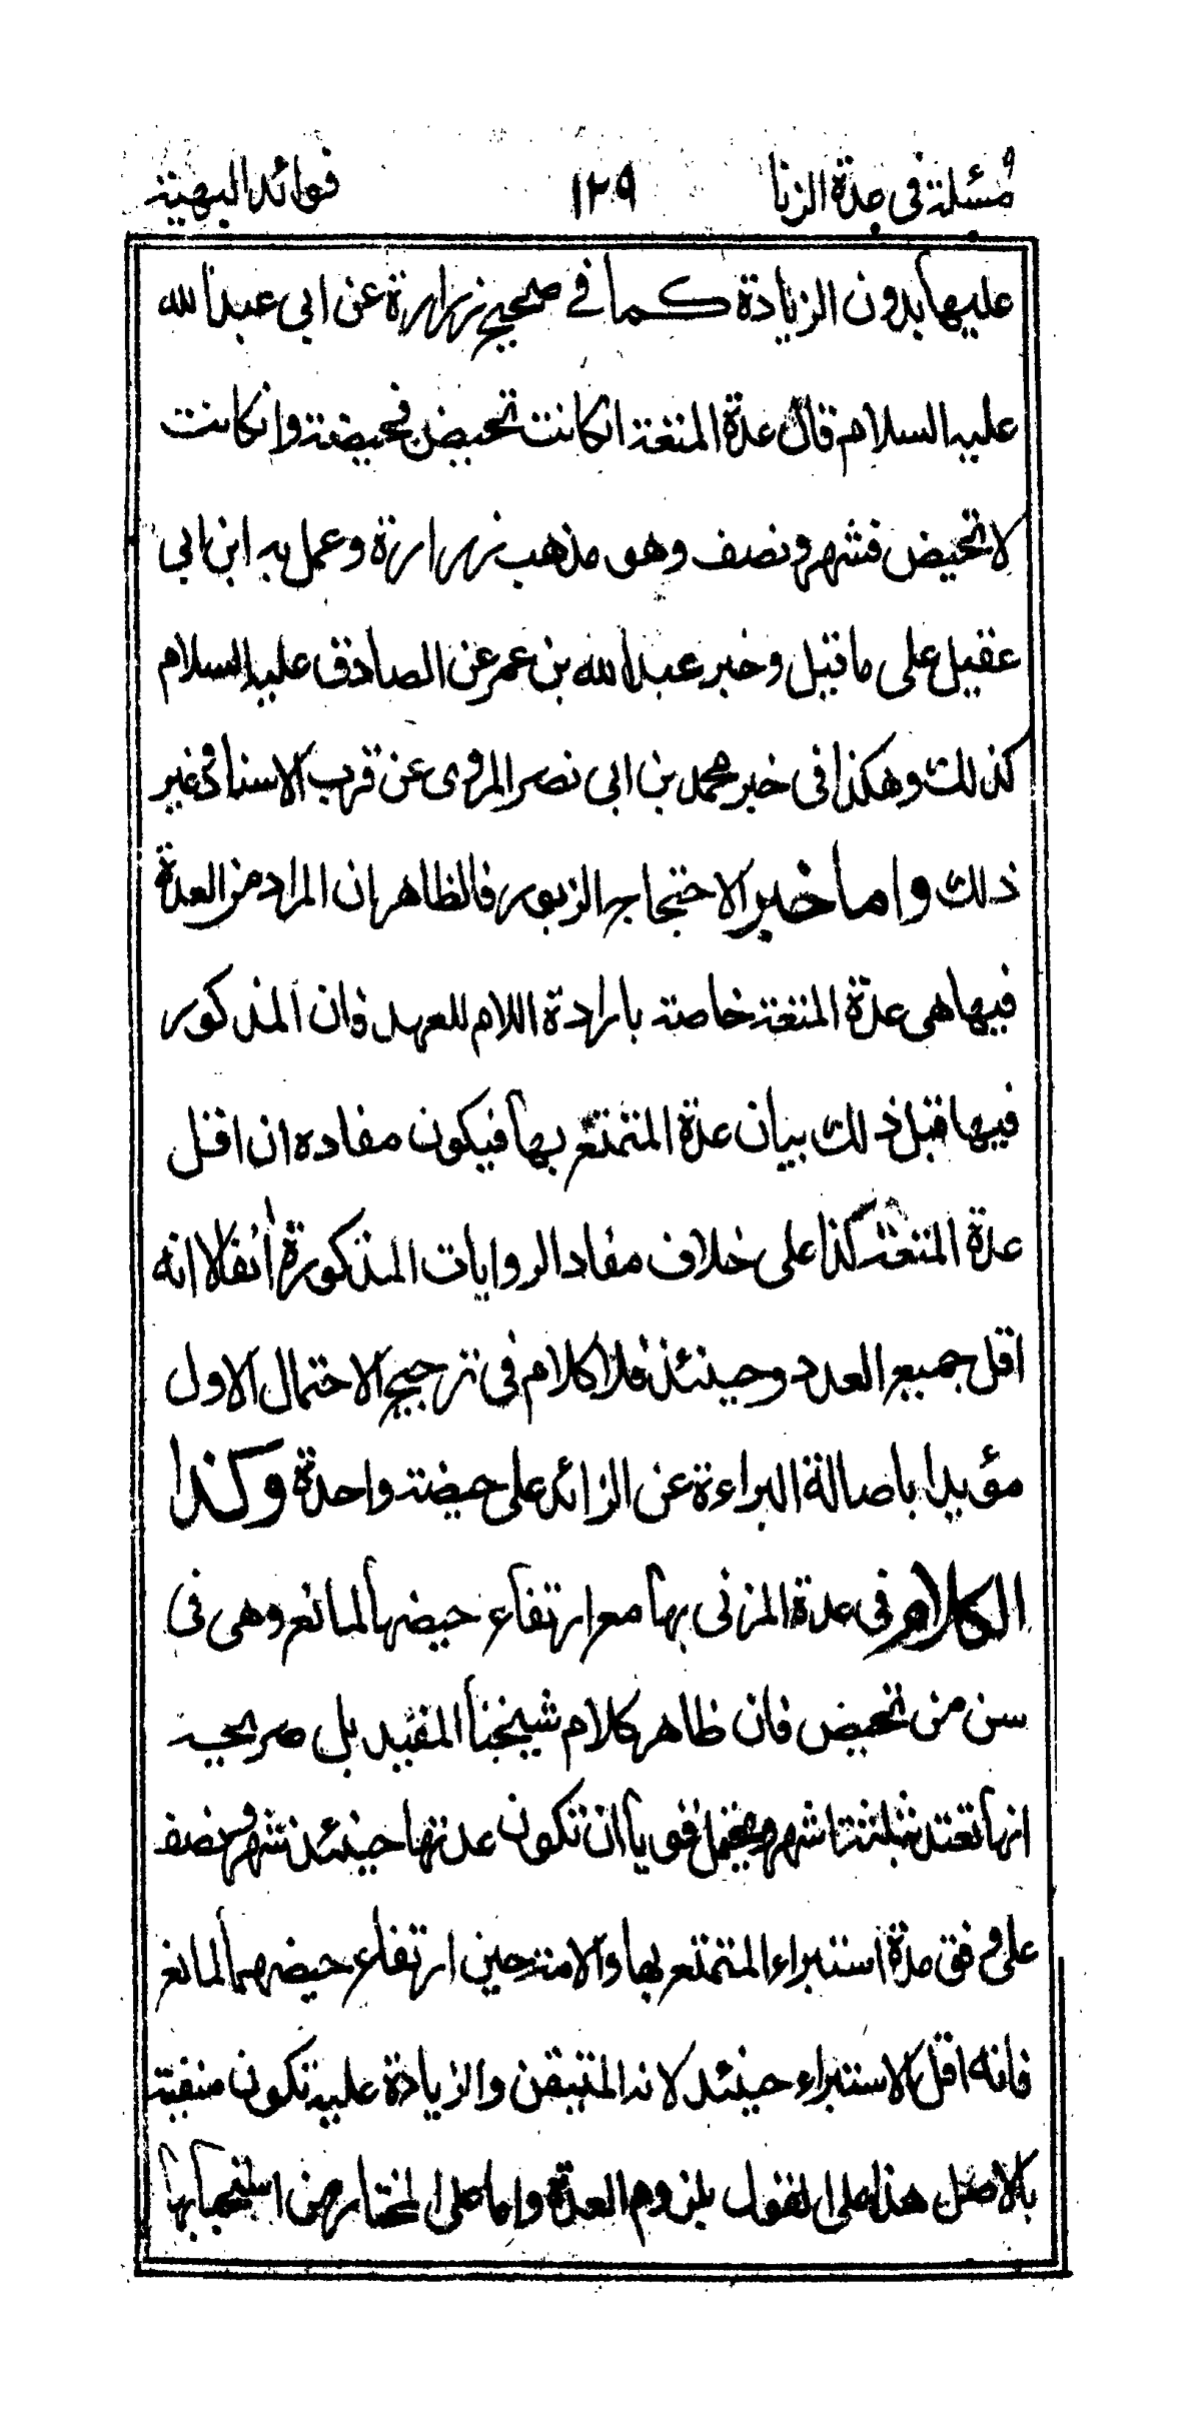 مسئلة في عدة الزنا ١٢٩ فوائد البهية
عليها بدون الزيادة كما في صحيح زرارة عن ابي عبد الله
عليه السلام قال عدة المتعة انكانت تحيض فحيضة وانكانت
لا تحيض فشهر ونصف وهو مذهب زرارة وعمل به ابن ابي
عقيل على ما قيل وخبر عبد الله بن عمر عن الصادق عليه السلام
كذلك وهكذا في خبر محمد بن ابي نصر المروي عن قرب الاسناد وغير
ذلك واما خبر الاحتجاج المزبور فالظاهر ان المراد من العدة
فيها هي عدة المتعة خاصة بارادة اللام للعهد فان المذكور
فيها قبل ذلك بيان عدة المتمتع بها فيكون مفاده ان اقل
عدة المتعة كذا على خلاف مفاد الروايات المذكورة آنفا لا انه
اقل جميع العدد وحينئذ فلا كلام في ترجيح الاحتمال الاول
مؤيدا باصالة البراءة عن الزائد على حيضة واحدة وكذا
الكلام في عدة المزني بها مع ارتفاع حيضها لمانع وهي في
سن من تحيض فان ظاهر كلام شيخنا المفيد بل صريحه
انها تعتد بثلثة اشهر ويحتمل قويا ان تكون عدتها حينئذ شهر ونصف
على وفق مدة استبراء المتمتع بها والامة حين ارتفاع حيضهما لمانع
فانه اقل الاستبراء حينئذ لانه المتيقن والزيادة عليه تكون منفية
بالاصل هذا على القول بلزوم العدة واما على المختار من استحبابها